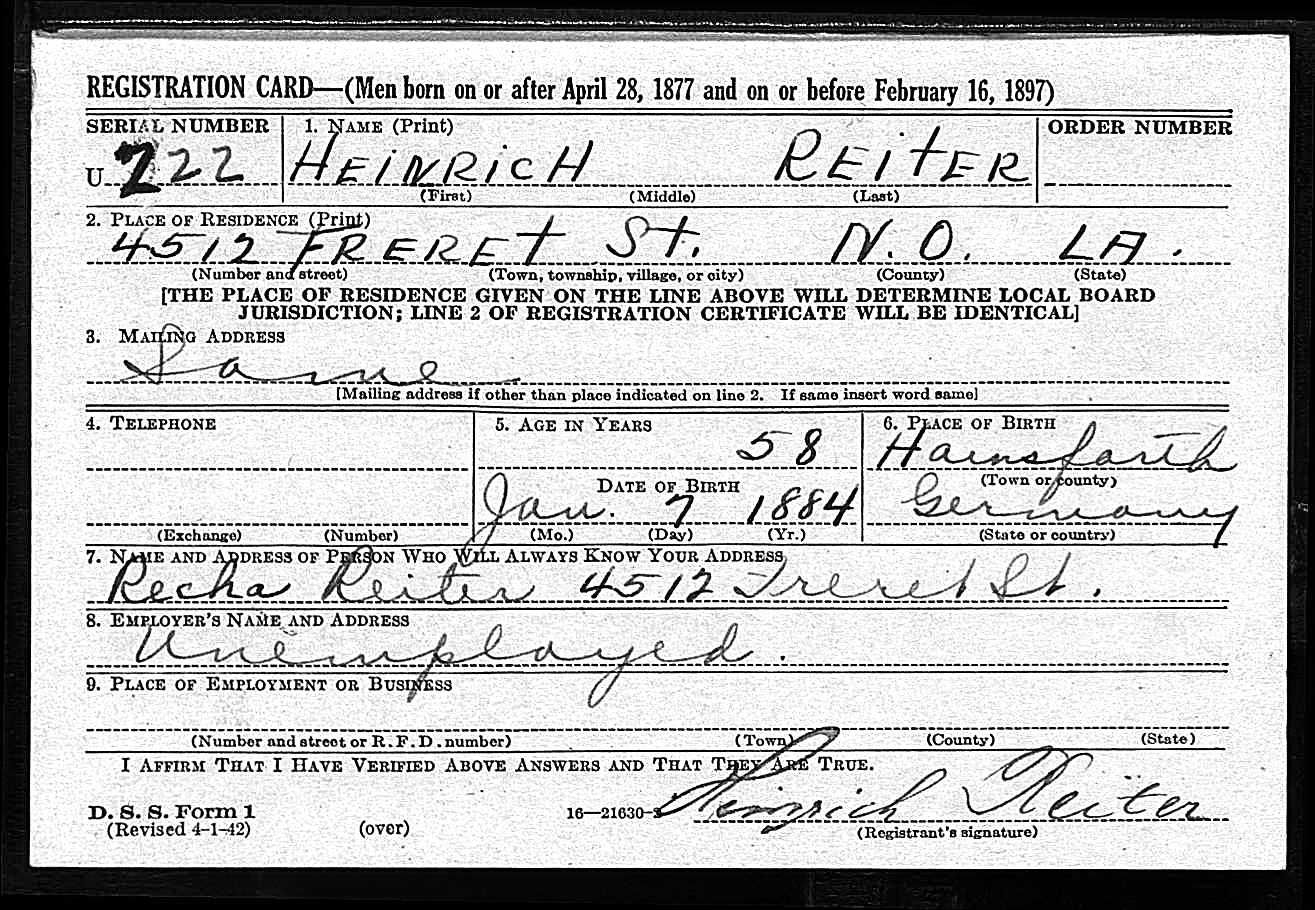 REGISTRATION CARD—(Men born on or after April 28, 1877 and on or before February 16, 1897)
SERIAL NUMBER 1. NAME (Print) ORDER NUMBER
U 222 HEINRICH REITER
(First) (Middle) (Last)
2. PLACE OF RESIDENCE (Print)
4512 FRERET St. N.O. LA.
(Number and street) (Town, township, village, or city) (County) (State)
[THE PLACE OF RESIDENCE GIVEN ON THE LINE ABOVE WILL DETERMINE LOCAL BOARD
JURISDICTION; LINE 2 OF REGISTRATION CERTIFICATE WILL BE IDENTICAL]
3. MAILING ADDRESS
Same
[Mailing address if other than place indicated on line 2. If same insert word same]
4. TELEPHONE 5. AGE IN YEARS 6. PLACE OF BIRTH
58 Hainsfarth
DATE OF BIRTH (Town or county)
Jan. 7 1884 Germany
(Exchange) (Number) (Mo.) (Day) (Yr.) (State or country)
7. NAME AND ADDRESS OF PERSON WHO WILL ALWAYS KNOW YOUR ADDRESS
Recha Reiter 4512 Freret St.
8. EMPLOYER'S NAME AND ADDRESS
Unemployed.
9. PLACE OF EMPLOYMENT OR BUSINESS
(Number and street or R. F. D. number) (Town) (County) (State)
I AFFIRM THAT I HAVE VERIFIED ABOVE ANSWERS AND THAT THEY ARE TRUE.
D. S. S. Form 1 16—21630-2 Heinrich Reiter
(Revised 4-1-42) (over) (Registrant's signature)